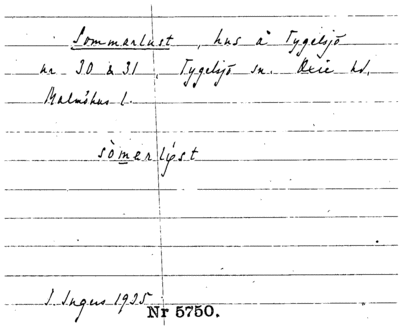 Sommarlust, hus å Tygelsjö
nr 30 & 31, Tygelsjö sn. Oxie hd,
Malmöhus l.
sòmerlyst
I. Ingers 1925
Nr 5750.